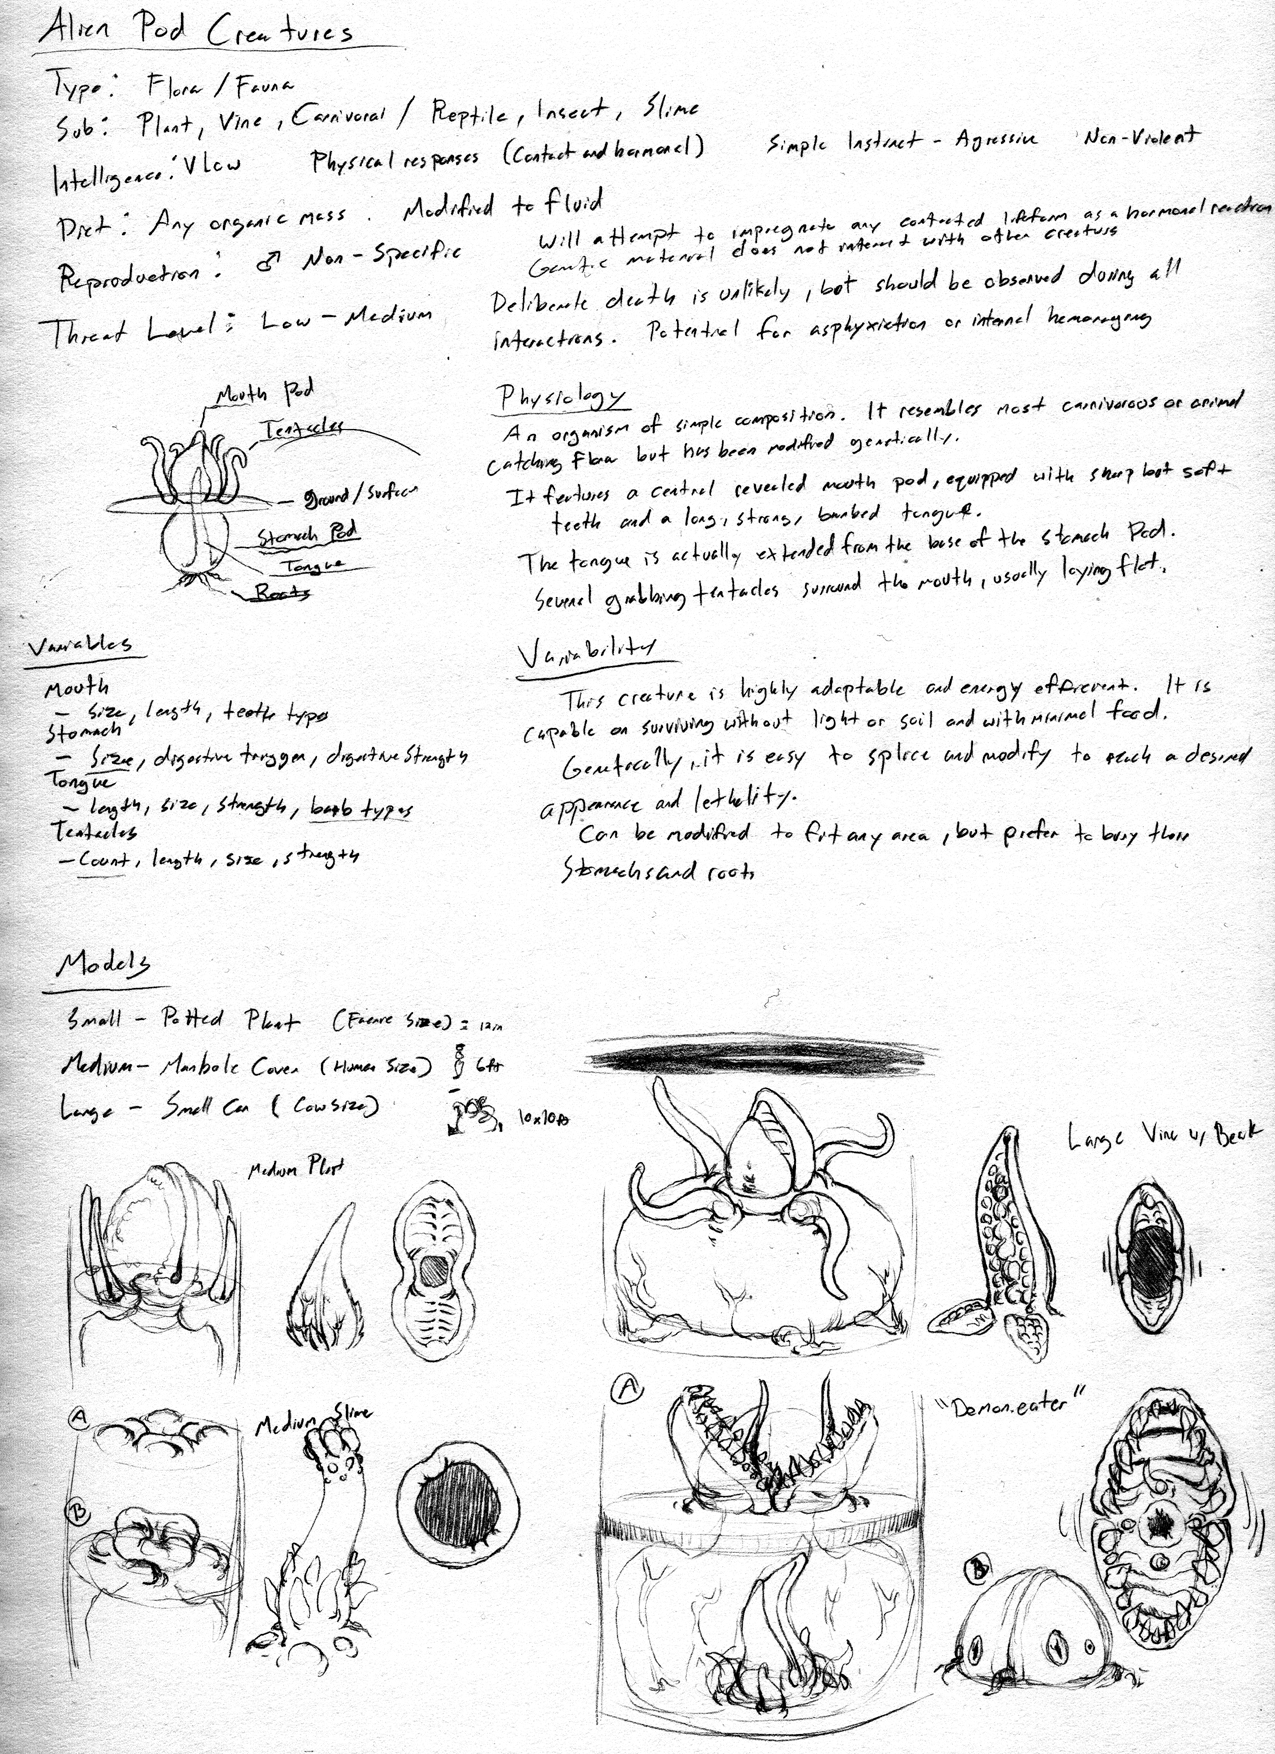 Alien Pod Creatures
Type: Flora / Fauna
Sub: Plant, Vine, Carnivoral / Reptile, Insect, Slime
Intelligence: VLow Physical responses (Contact and hormonel) Simple Instinct - Agressive Non-Violent
Diet: Any organic mass. Modified to fluid
Reproduction: ♂ Non-Specific
Will attempt to impregnate any contacted lifeform as a hormonal reaction
Genetic material does not interact with other creatures
Threat Level: Low - Medium
Deliberate death is unlikely, but should be observed during all
interactions. Potential for asphyxiation or internal
Mouth Pod
Tentacles
Ground / Surface
Stomach Pod
Tongue
Roots
Physiology
An organism of simple composition. It resembles most carnivorous or animal
catching flora but has been modified genetically.
It features a central revealed mouth pod, equipped with sharp but soft
teeth and a long, strong, barbed tongue.
The tongue is actually extended from the base of the stomach Pod.
Several grabbing tentacles surround the mouth, usually laying flat.
Variables
Mouth
- Size, length, teeth type
Stomach
- Size, digestive trigger, digestive Strength
Tongue
- length, size, strength, barb types
Tentacles
- Count, length, size, strength
Variability
This creature is highly adaptable and energy efficient. It is
capable on surviving without light or soil and with minimal food.
Genetically, it is easy to splice and modify to reach a desired
appearance and lethality.
Can be modified to fit any area, but prefer to bury there
Stomachs and roots
Models
Small - Potted Plant = 12in
Medium - Manhole Cover (Human Size) 6ft
Large - Small Car (Cow Size) 10x10ft
Medium Plant
Large Vine w/ Beak
A
Medium Slime
B
A
"Demon.eater"
B